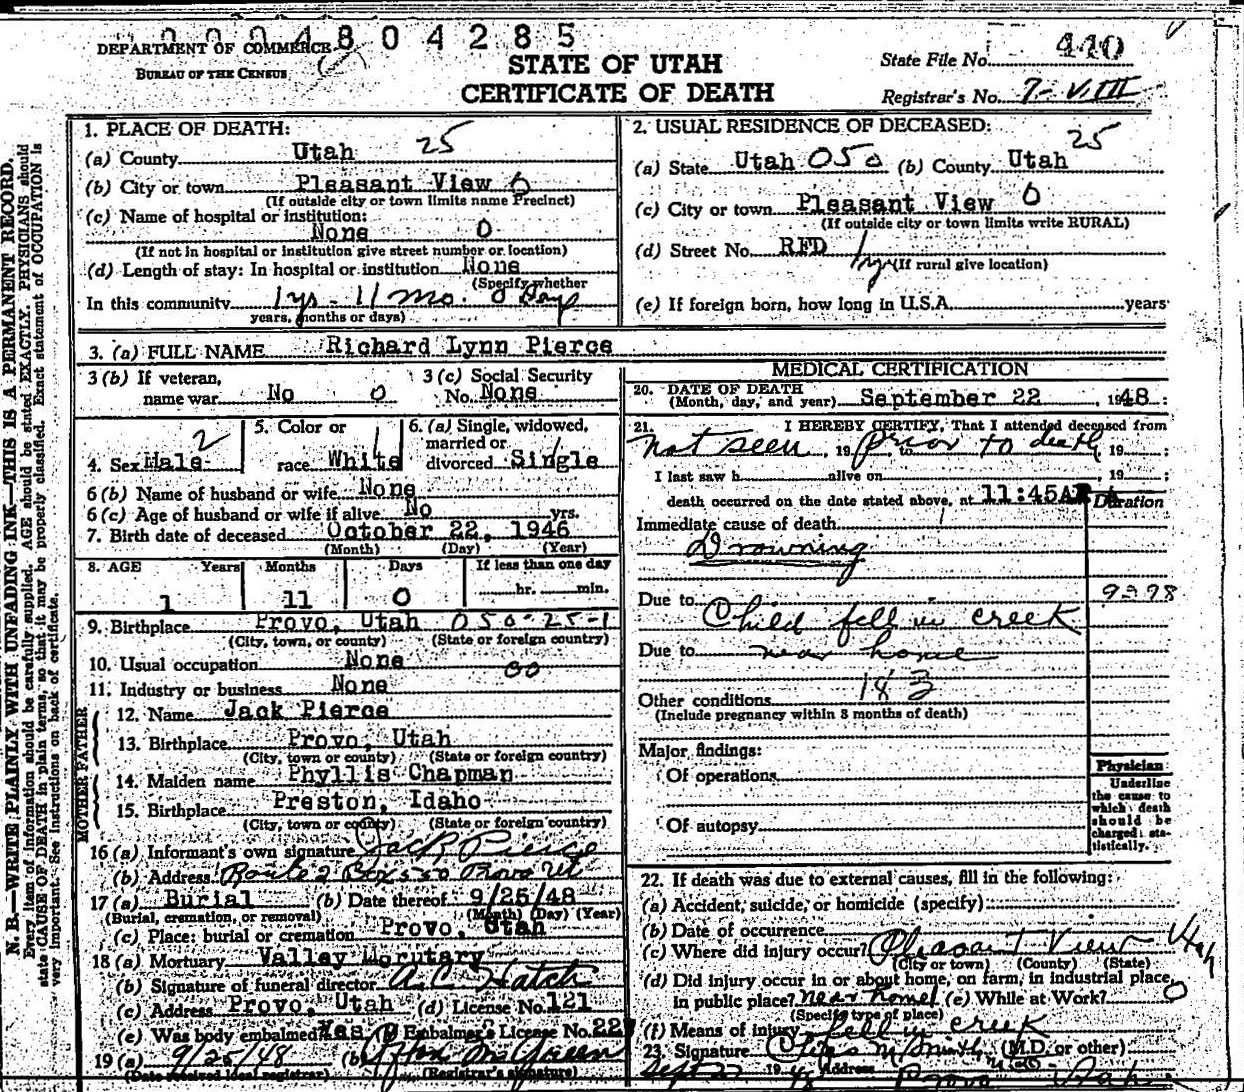 0004804285
DEPARTMENT OF COMMERCE
BUREAU OF THE CENSUS
STATE OF UTAH
CERTIFICATE OF DEATH
State File No. 440
Registrar's No. 7- VIII
N. B.—WRITE PLAINLY WITH UNFADING INK—THIS IS A PERMANENT RECORD.
Every item of information should be carefully supplied. AGE should be stated EXACTLY. PHYSICIANS should
state CAUSE OF DEATH in plain terms, so that it may be properly classified. Exact statement of OCCUPATION is
very important. See instructions on back of certificate.
1. PLACE OF DEATH: 25
(a) County Utah
(b) City or town Pleasant View 0
(If outside city or town limits name Precinct)
(c) Name of hospital or institution:
None 0
(If not in hospital or institution give street number or location)
(d) Length of stay: In hospital or institution None
(Specify whether
In this community 1 yrs - 11 mo. 0 days
years, months or days)
2. USUAL RESIDENCE OF DECEASED: 25
(a) State Utah 050 (b) County Utah
(c) City or town Pleasant View 0
(If outside city or town limits write RURAL)
(d) Street No. RFD
(If rural give location)
(e) If foreign born, how long in U.S.A. years
3. (a) FULL NAME Richard Lynn Pierce
3 (b) If veteran,
name war No 0
3 (c) Social Security
No. None
4. Sex Male 2
5. Color or
race White 1
6. (a) Single, widowed,
married or
divorced Single 1
6 (b) Name of husband or wife None
6 (c) Age of husband or wife if alive No yrs.
7. Birth date of deceased October 22, 1946
(Month) (Day) (Year)
8. AGE Years Months Days If less than one day
1 11 0 hr. min.
9. Birthplace Provo, Utah 050-25-1
(City, town, or county) (State or foreign country)
10. Usual occupation None 00
11. Industry or business None
FATHER
12. Name Jack Pierce
13. Birthplace Provo, Utah
(City, town or county) (State or foreign country)
MOTHER
14. Maiden name Phyllis Chapman
15. Birthplace Preston, Idaho
(City, town or county) (State or foreign country)
16 (a) Informant's own signature Jack Pierce
(b) Address Route 2 Box 550 Provo Ut
17 (a) Burial (b) Date thereof 9/25/48
(Burial, cremation, or removal) (Month) (Day) (Year)
(c) Place: burial or cremation Provo, Utah
18 (a) Mortuary Valley Morutary
(b) Signature of funeral director A. C. Hatch
(c) Address Provo, Utah (d) License No. 121
(e) Was body embalmed Yes (f) Embalmer's License No. 22
19 (a) 9/25/48 (b)
(Date received local registrar) (Registrar's signature)
MEDICAL CERTIFICATION
20. DATE OF DEATH
(Month, day, and year) September 22, 1948
21. I HEREBY CERTIFY, That I attended deceased from
Not seen, 19 prior to death, 19
I last saw h alive on, 19
death occurred on the date stated above, at 11:45A
Duration
Immediate cause of death
Drowning
Due to Child fell in creek
Due to near home
183
Other conditions
(Include pregnancy within 3 months of death)
Major findings:
Of operations
Of autopsy
Physician
Underline
the cause to
which death
should be
charged sta-
tistically.
22. If death was due to external causes, fill in the following:
(a) Accident, suicide, or homicide (specify)
(b) Date of occurrence
(c) Where did injury occur? Pleasant View Utah
(City or town) (County) (State)
(d) Did injury occur in or about home, on farm, in industrial place,
in public place? near home (e) While at Work? 0
(Specify type of place)
(f) Means of injury fell in creek
23. Signature Smith (M.D. or other)
Sept 1948 Address Provo